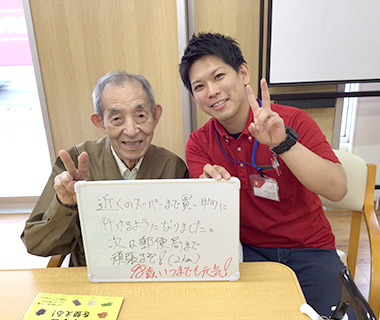 近くのスーパーまで買い物に
行けるようになりました。
次は郵便局まで
頑張るぞ!(2km)
98歳、いつまでも元気!
を整える!